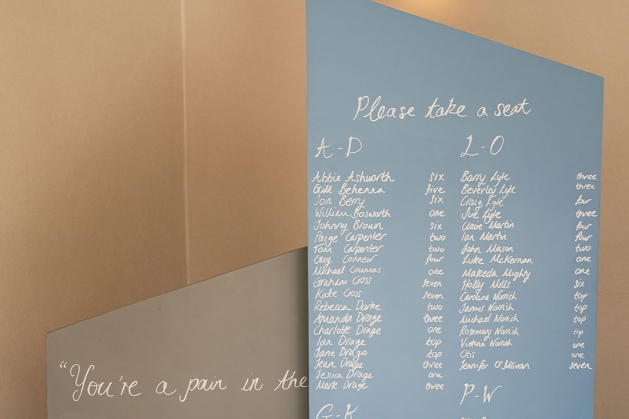 Please take a seat
A-D
Abbie Ashworth six
Gill Behenna five
Jon Berry six
William Bosworth one
Johnny Brown six
Paige Carpenter two
Tom Carpenter two
Cary Connew four
Michael Counas one
Graham Cross seven
Kate Cross seven
Rebecca Darke two
Amanda Drage three
Charlotte Drage one
Ian Drage top
Jane Drage top
Jean Drage three
Jessica Drage one
Mark Drage three
G-K
L-O
Barry Lyle three
Beverley Lyle three
Craig Lyle four
Sue Lyle three
Clave Martin four
Ian Martin four
John Mason two
Luke McKernan one
Makeda Mighty one
Holly Mills six
Caroline Norrish top
James Norrish top
Michael Norrish top
Rosemary Norrish top
Victoria Norrish one
Otis one
Jennifer O'Sullivan seven
P-W
"You're a pain in the